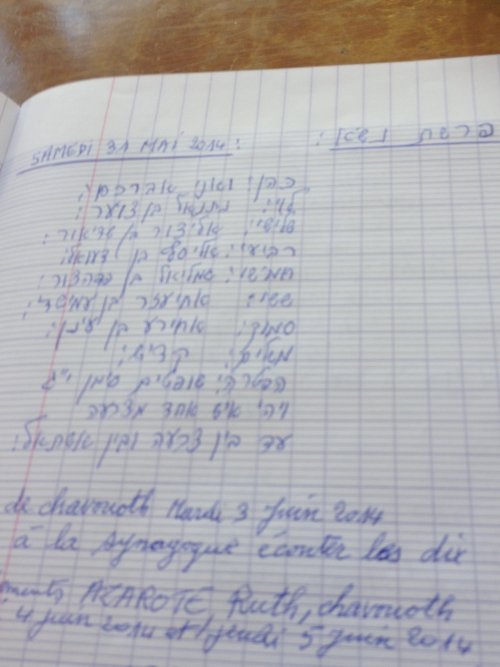 SAMEDI 31 MAI 2014: פרשת נשא:
כהן: ואני אברכם:
לוי: נתנאל בן צוער:
שלישי: אליצור בן שדיאור:
רביעי: אליסף בן דעואל:
חמישי: גמליאל בן פדהצור:
ששי: אחיעזר בן עמישדי:
סמוך: אחירע בן עינן:
משלים: קדיש:
הפטרה: שופטים סימן י״ג
ויהי איש אחד מצרעה
עד בין צרעה ובין אשתאל:
de chavouoth Mardi 3 juin 2014
à la synagogue écouter les dix
ments AZAROTE, Ruth, chavouoth
4 juin 2014 et jeudi 5 juin 2014